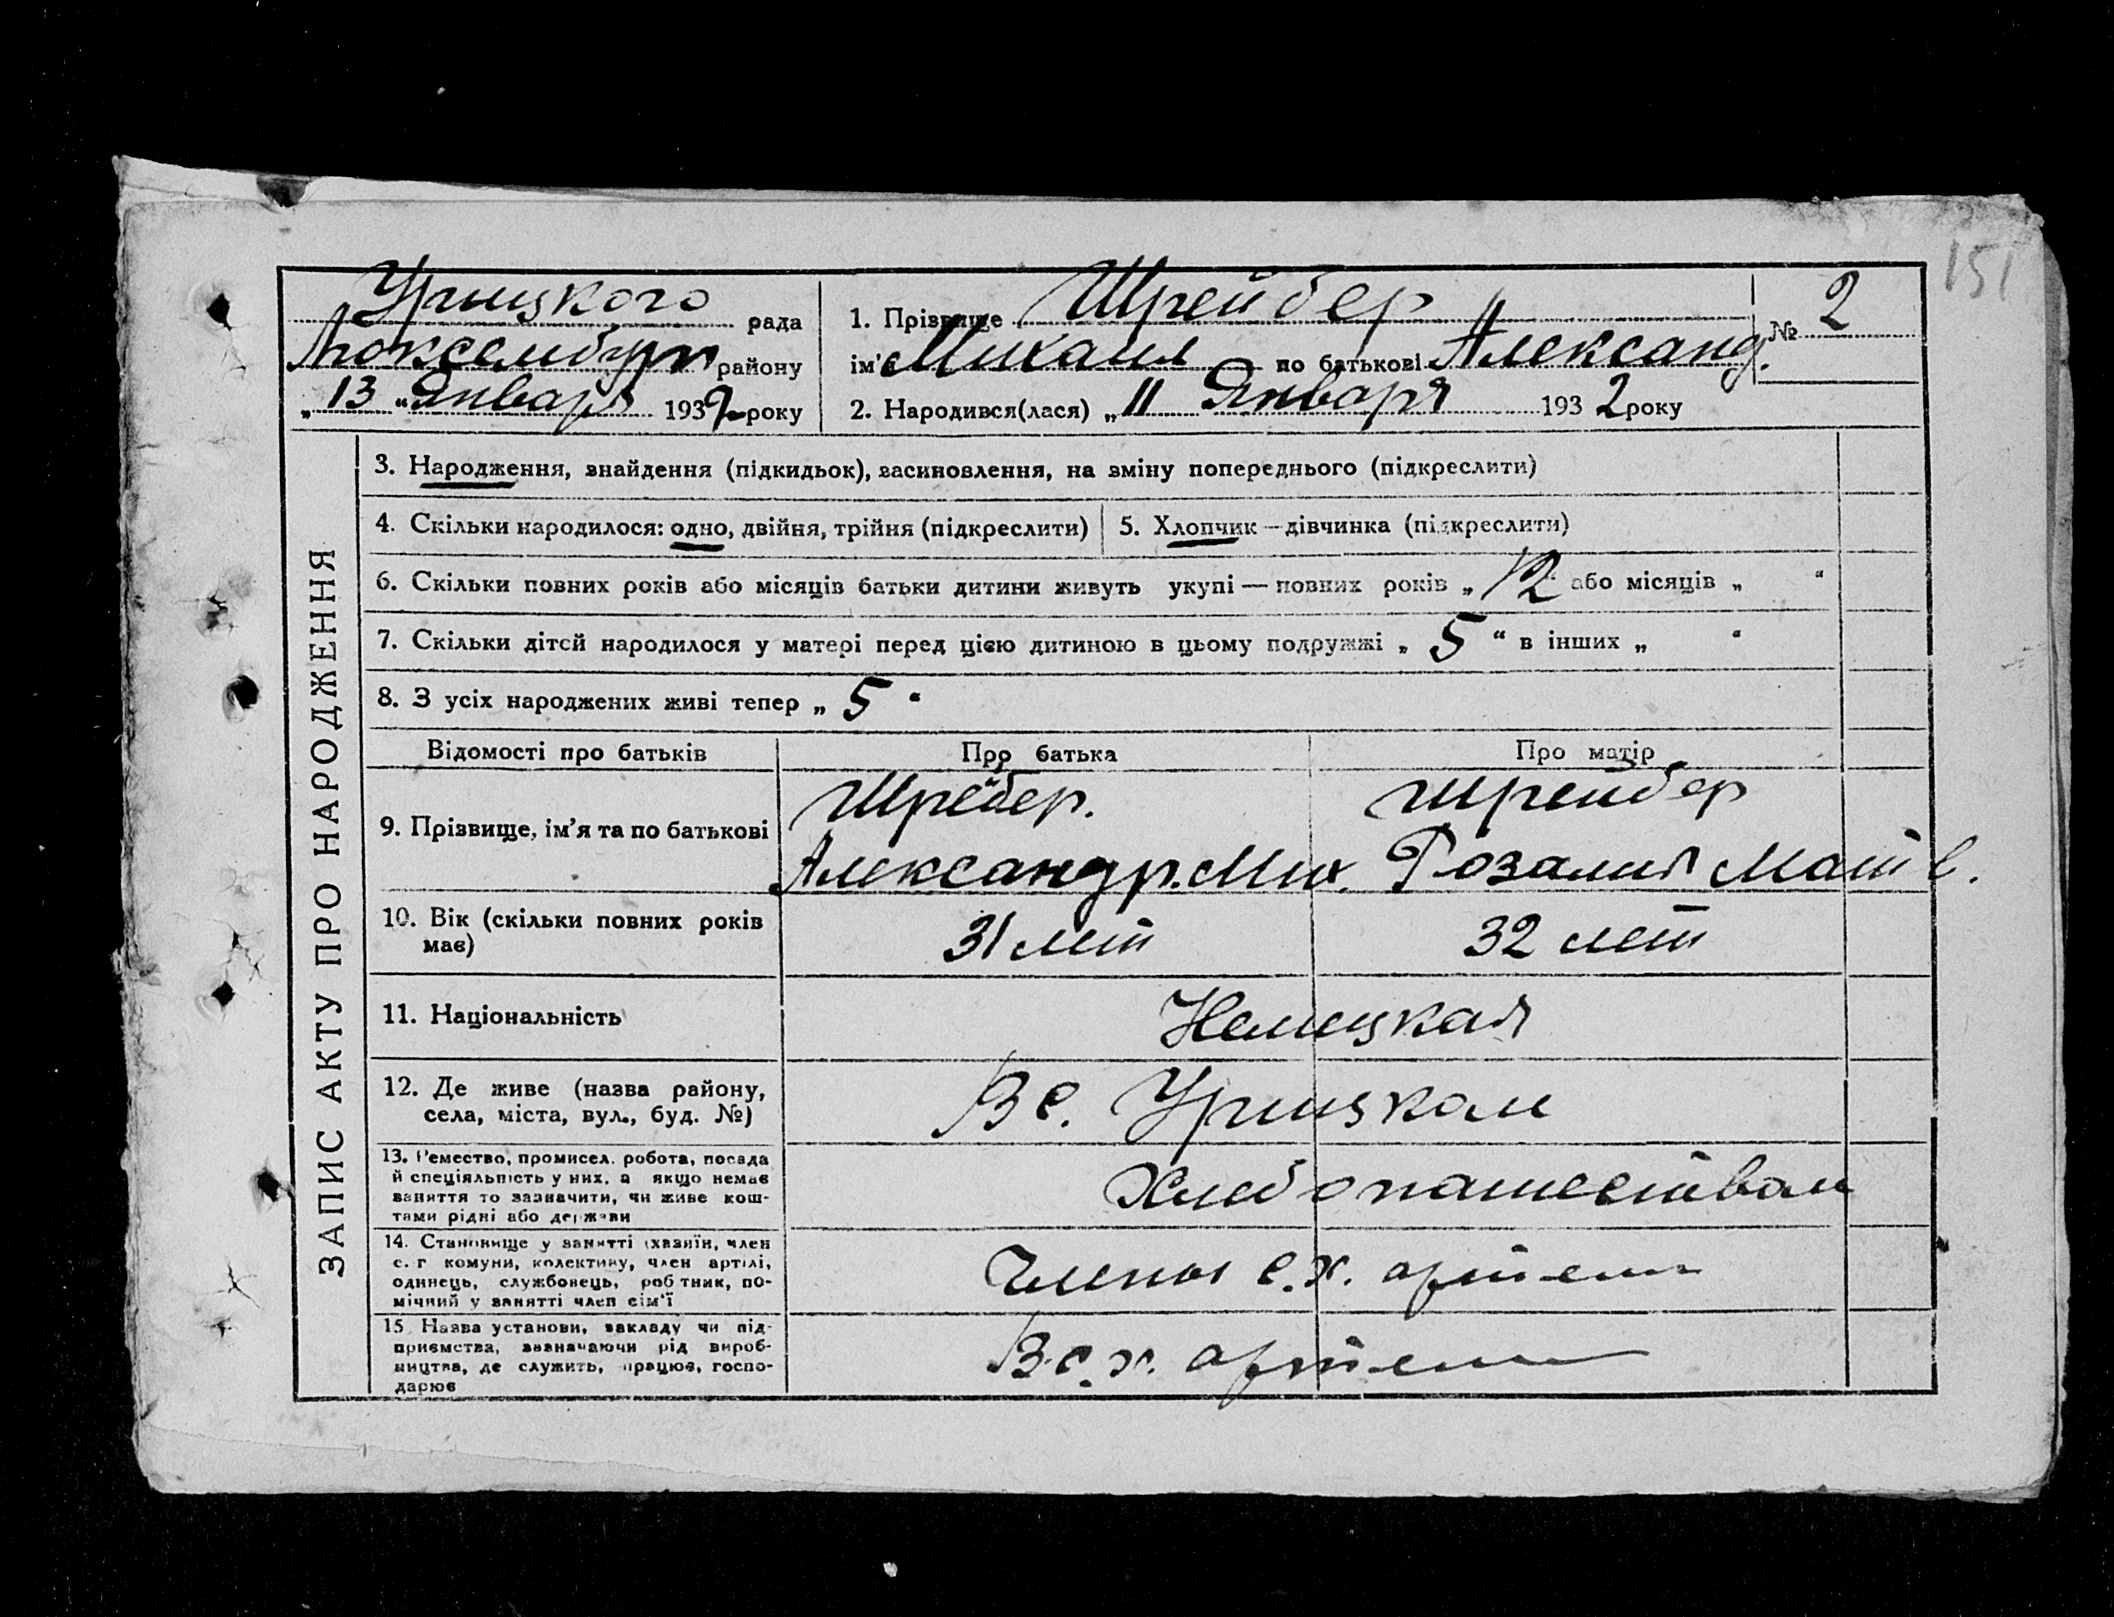 151
Урицкого рада
Люксембург району
„13 “ Января 1932 року
1. Прізвище Шрейбер
ім'я Михаил по батькові Александ.
№ 2
2. Народився(лася) „11 Января 1932 року
ЗАПИС АКТУ ПРО НАРОДЖЕННЯ
3. Народження, знайдення (підкидьок), засиновлення, на зміну попереднього (підкреслити)
4. Скільки народилося: одно, двійня, трійня (підкреслити)
5. Хлопчик — дівчинка (підкреслити)
6. Скільки повних років або місяців батьки дитини живуть укупі — повних років „ 12 “ або місяців „ “
7. Скільки дітей народилося у матері перед цією дитиною в цьому подружжі „ 5 “ в інших „ “
8. З усіх народжених живі тепер „ 5 “
Відомості про батьків
Про батька
Про матір
9. Прізвище, ім'я та по батькові
Шребер.
Александр. Мих.
Шрейбер
Розалия Матв.
10. Вік (скільки повних років
має)
31 лет
32 лет
11. Національність
Немецкая
12. Де живе (назва району,
села, міста, вул., буд. №)
В с. Урицком
13. Ремество, промисел, робота, посада
й спеціяльність у них, а якщо немає
заняття то зазначити, чи живе кош-
тами рідні або держави
Хлебопашеством
14. Становище у занятті (хазяїн, член
с.-г комуни, колективу, член артілі,
одинець, службовець, робітник, по-
мічний у занятті член сім'ї
Члены с.х. артели
15. Назва установи, закладу чи під-
приємства, зазначаючи рід вироб-
ництва, де служить, працює, госпо-
дарює
В с.х. артели